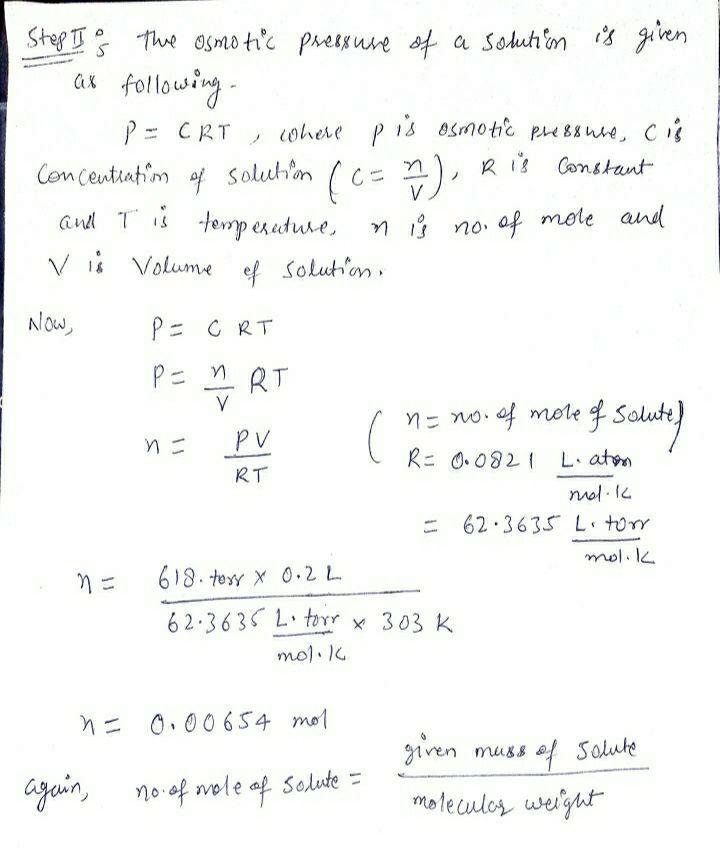 Step II: The osmotic pressure of a solution is given
as following -
P = CRT, where p is osmotic pressure, C is
Concentration of solution (C = n/V), R is Constant
and T is temperature, n is no. of mole and
V is Volume of solution.
Now, P = C RT
P = n/V RT
n = PV/RT
(n = no. of mole of solute)
R = 0.0821 L. atom/mol.k
= 62.3635 L. torr/mol.k
n = 618. torr x 0.2 L / 62.3635 L. torr/mol.k x 303 K
n = 0.00654 mol
again, no. of mole of solute = given mass of solute / molecular weight